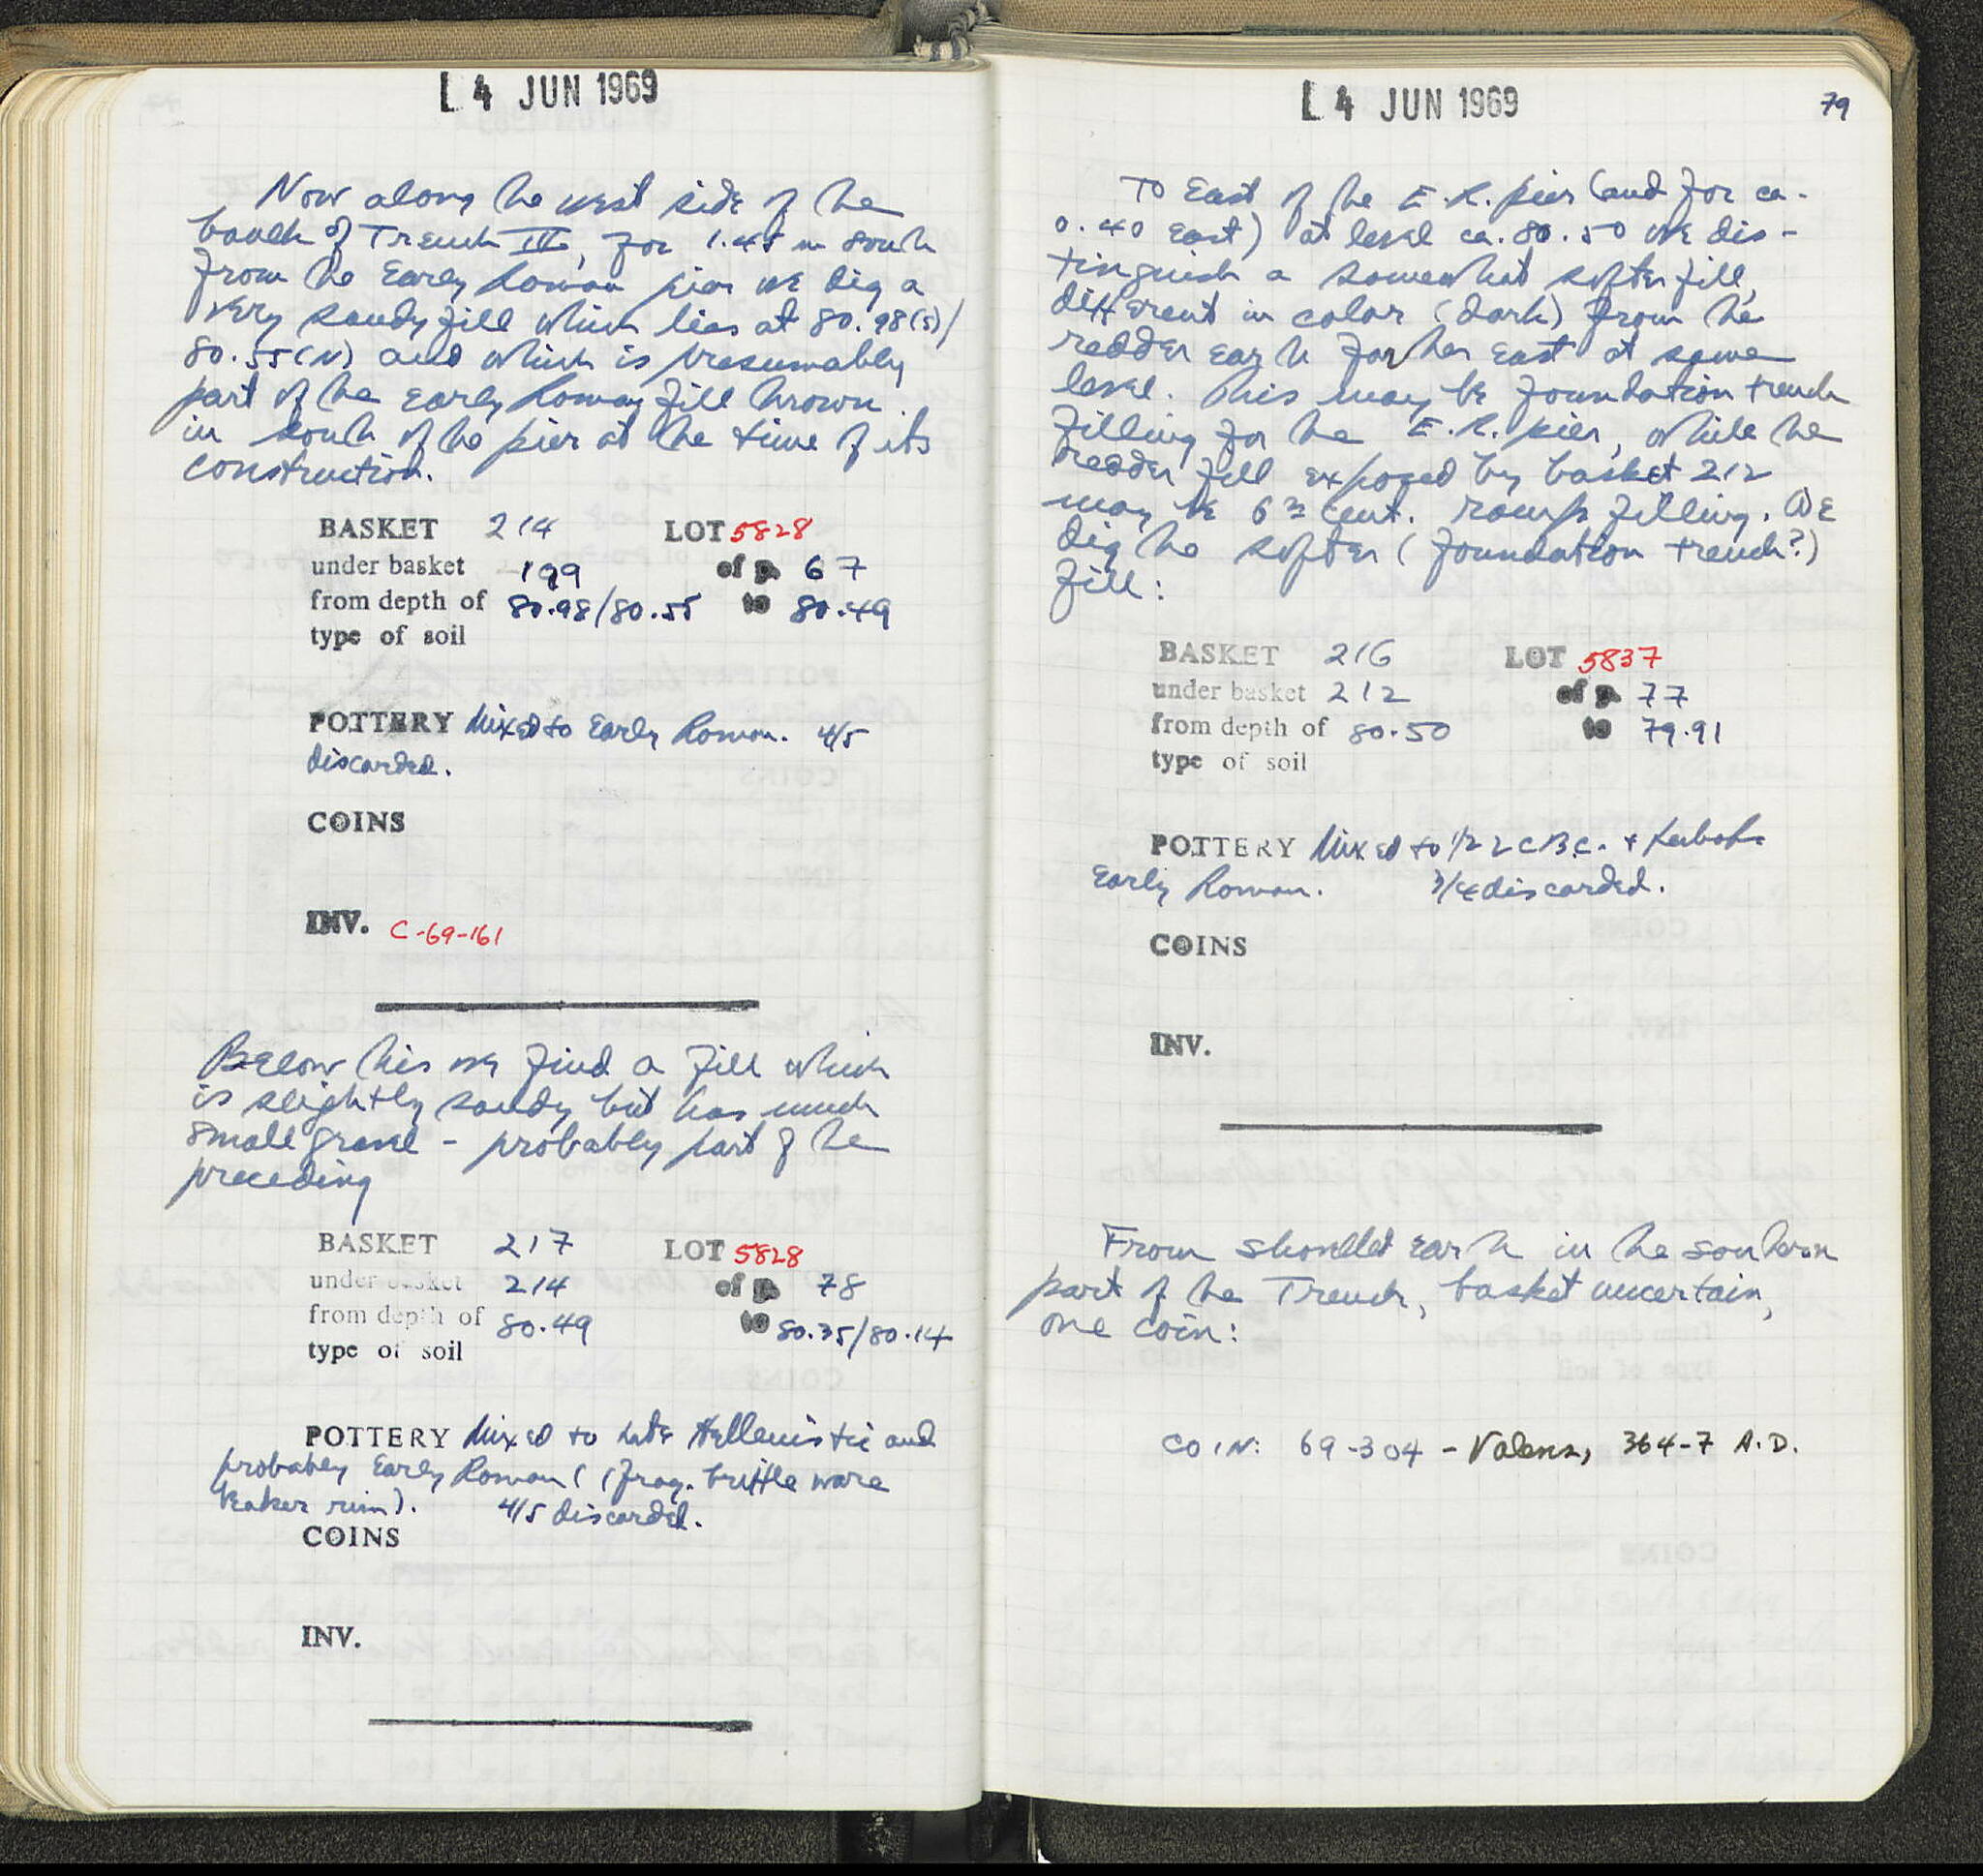 L 4 JUN 1969
Now along the west side of the
booth of Trench III, for 1.45 m south
from the Early Roman pier we dig a
very sandy fill which lies at 80.98(S)/
80.55(N) and which is presumably
part of the early Roman fill thrown
in south of the pier at the time of its
construction.
BASKET 214 LOT 5828
under basket 199 of p. 67
from depth of 80.98/80.55 to 80.49
type of soil
POTTERY Mixed to Early Roman. 4/5
discarded.
COINS
INV. C-69-161
Below this we find a fill which
is slightly sandy but has much
small gravel - probably part of the
preceding
BASKET 217 LOT 5828
under basket 214 of p. 78
from depth of 80.49 to 80.35/80.14
type of soil
POTTERY Mixed to Late Hellenistic and
probably Early Roman (1 frag. brittle ware
beaker rim). 4/5 discarded.
COINS
INV.
L 4 JUN 1969
79
To East of the E.R. pier (and for ca.
0.40 east) at level ca. 80.50 we dis-
tinguish a somewhat softer fill,
different in color (dark) from the
redder earth farther east at same
level. This may be foundation trench
filling for the E.R. pier, while the
redder fill exposed by basket 212
may be 6th cent. ramp filling. We
dig the softer (foundation trench?)
fill:
BASKET 216 LOT 5837
under basket 212 of p. 77
from depth of 80.50 to 79.91
type of soil
POTTERY Mixed to 1/2 2 c B.C. + perhaps
Early Roman. 3/4 discarded.
COINS
INV.
From shovelled earth in the southern
part of the Trench, basket uncertain,
one coin:
COIN: 69-304 - Valens, 364-7 A.D.